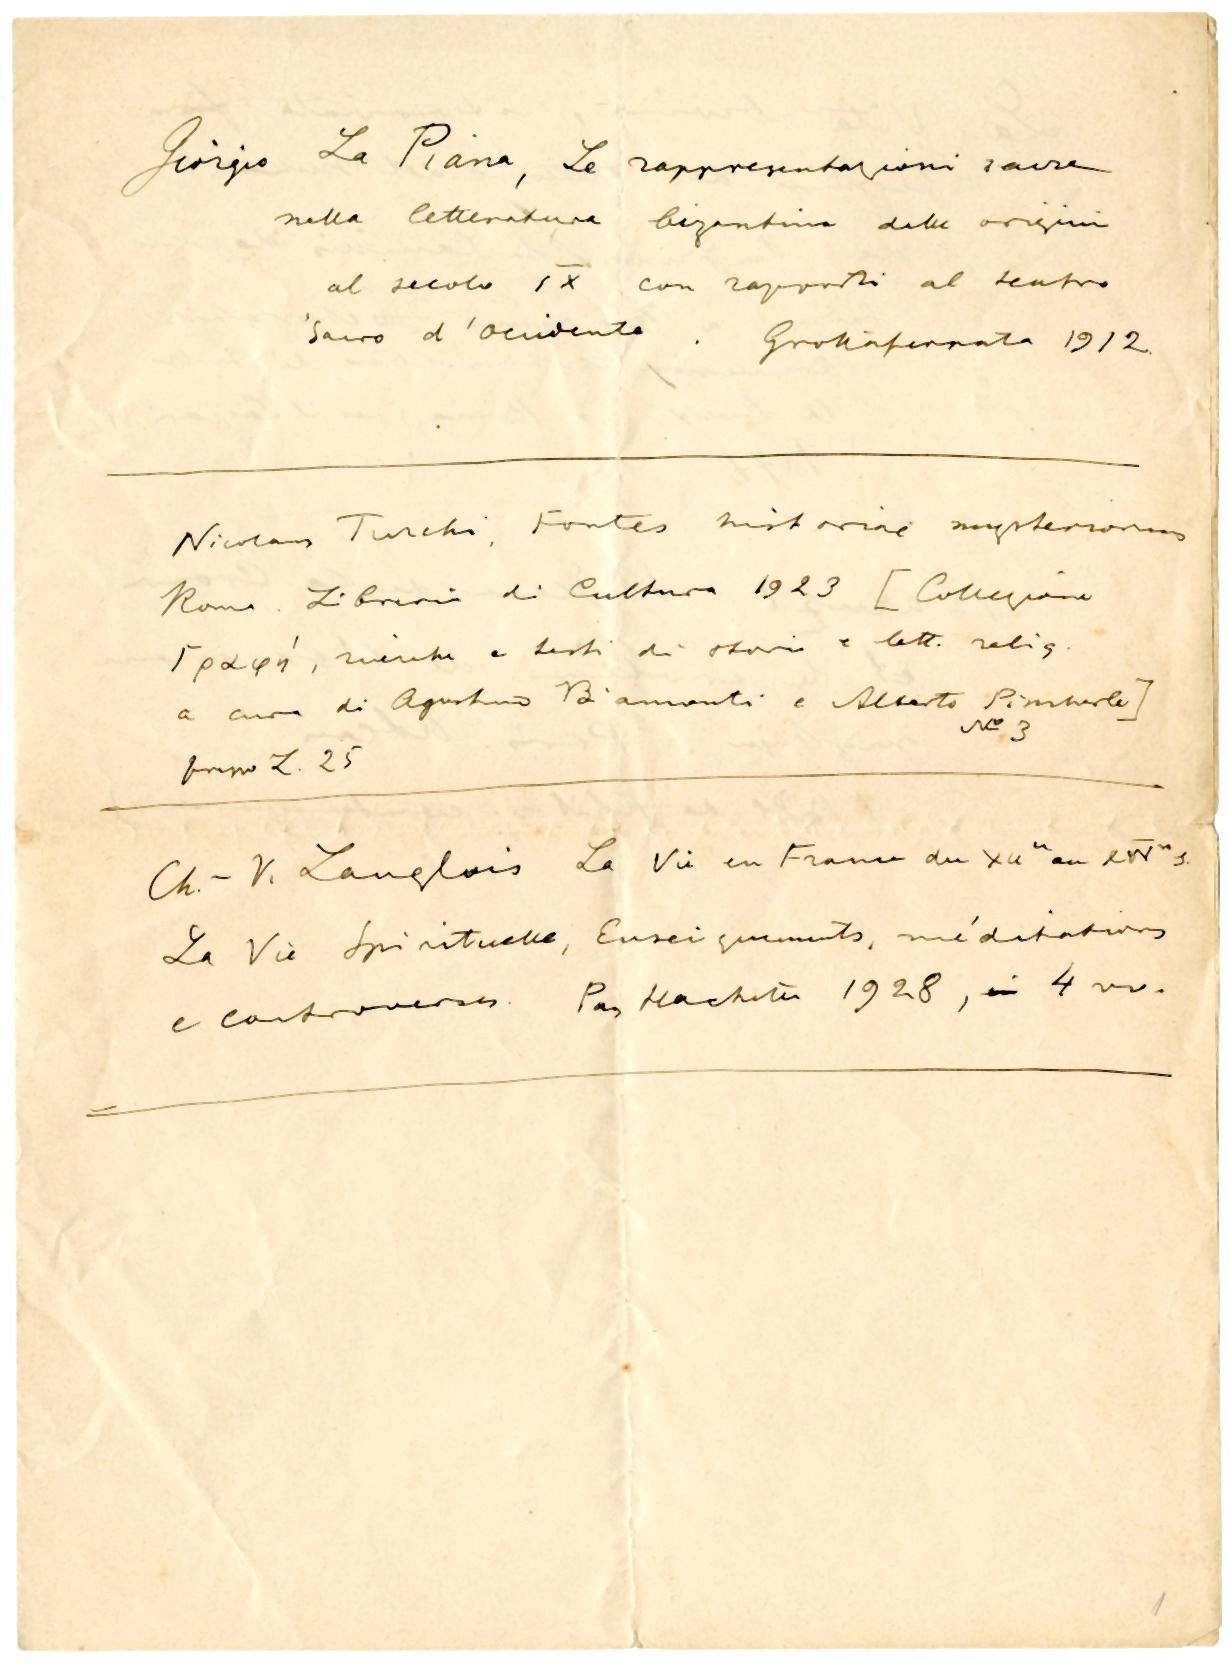 Giorgio La Piana, Le rappresentazioni sacre
nella letteratura bizantina dalle origini
al secolo IX con rapporti al teatro
Sacro d'Occidente. Grottaferrata 1912.
Nicolaus Turchi, Fontes historiae mysteriorum
Roma. Libreria di Cultura 1923 [Collezione
Γραφή, ricerche e testi di storia e lett. relig.
a cura di Agostino Biamonti e Alberto Pincherle]
No 3
prezzo L. 25
Ch.-V. Langlois La Vie en France du XII au s.
La Vie Spirituelle, Enseignements, méditations
e controverses. Hachette 1928, 4 vv.
1